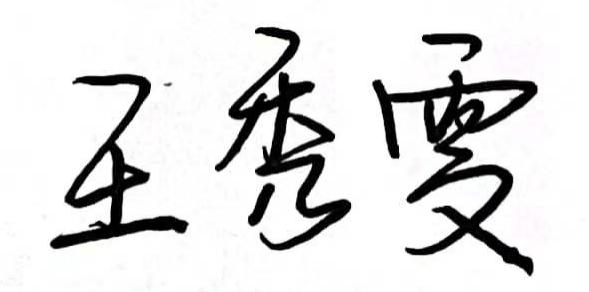 王秀雯